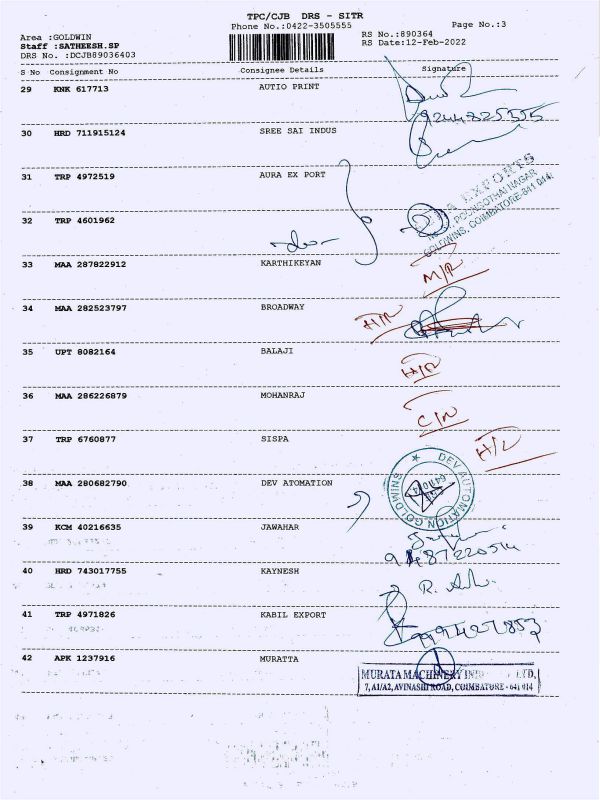 TPC/CJB DRS - SITR
Phone No.:0422-3505555
Page No.:3
Area :GOLDWIN
RS No.:890364
Staff :SATHEESH.SP
RS Date:12-Feb-2022
DRS No. :DCJB89036403
S No Consignment No Consignee Details Signature
29 KNK 617713 AUTIO PRINT
9244825555
30 HRD 711915124 SREE SAI INDUS
31 TRP 4972519 AURA EX PORT
EXPORTS
POONGOTHAI NAGAR
GOLDWINS, COIMBATORE-641 014
32 TRP 4601962
33 MAA 287822912 KARTHIKEYAN
M/R
34 MAA 282523797 BROADWAY
H/R
35 UPT 8082164 BALAJI
H/R
36 MAA 286226879 MOHANRAJ
C/N
37 TRP 6760877 SISPA
H/L
38 MAA 280682790 DEV ATOMATION
DEV AUTOMATION GOLDWINS
39 KCM 40216635 JAWAHAR
40 HRD 743017755 KAYNESH
41 TRP 4971826 KABIL EXPORT
42 APK 1237916 MURATTA
MURATA MACHINERY LTD,
7, A1/A2, AVINASHI ROAD, COIMBATORE - 641 014